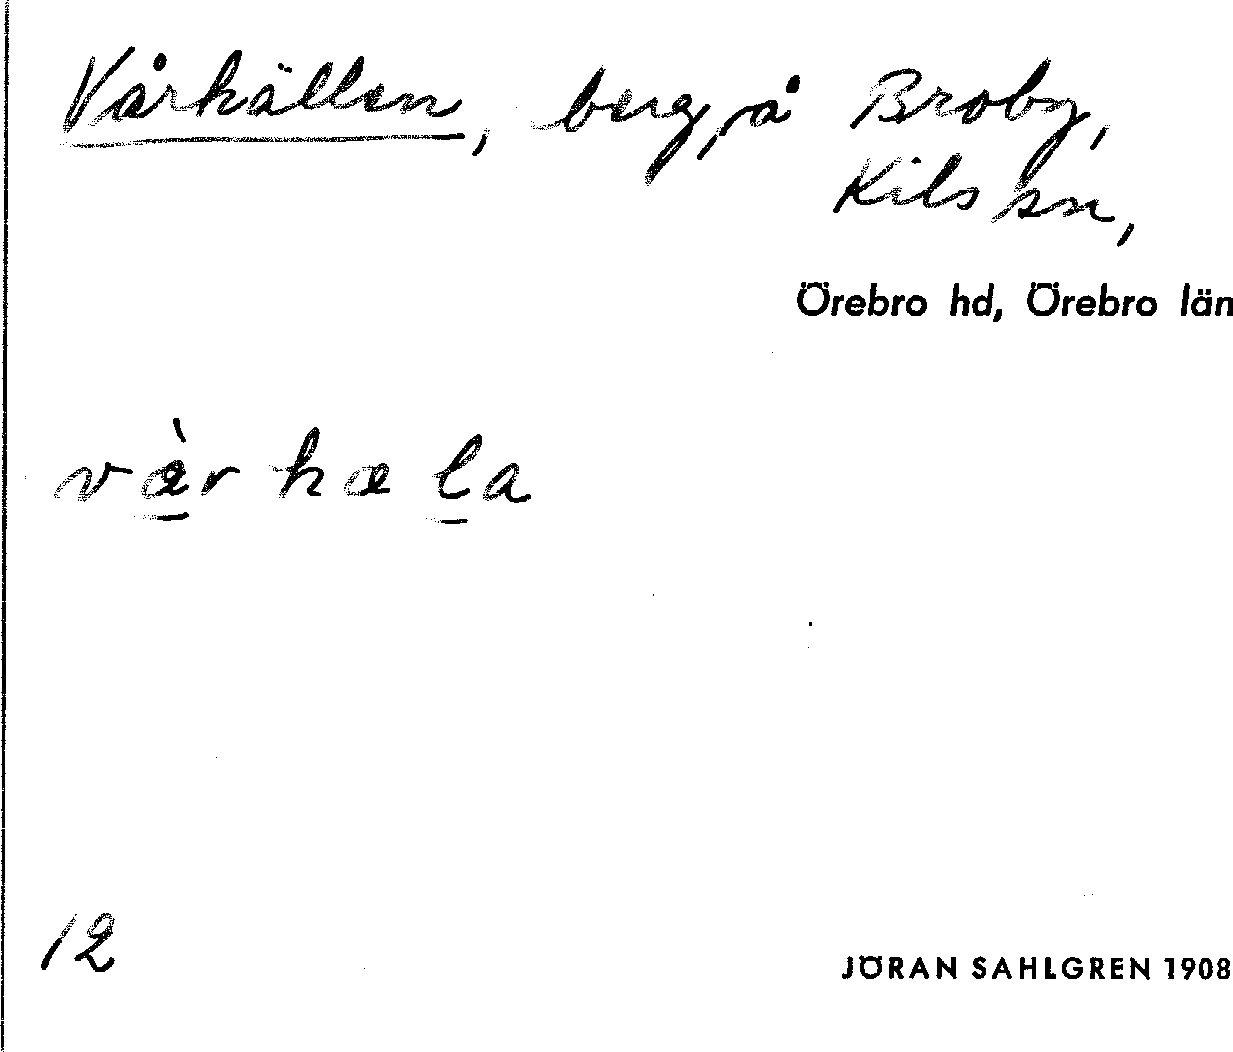 Vårhällen, berg, å Broby,
Kils sn,
Örebro hd, Örebro län
væ̀r hæ la
12
JÖRAN SAHLGREN 1908